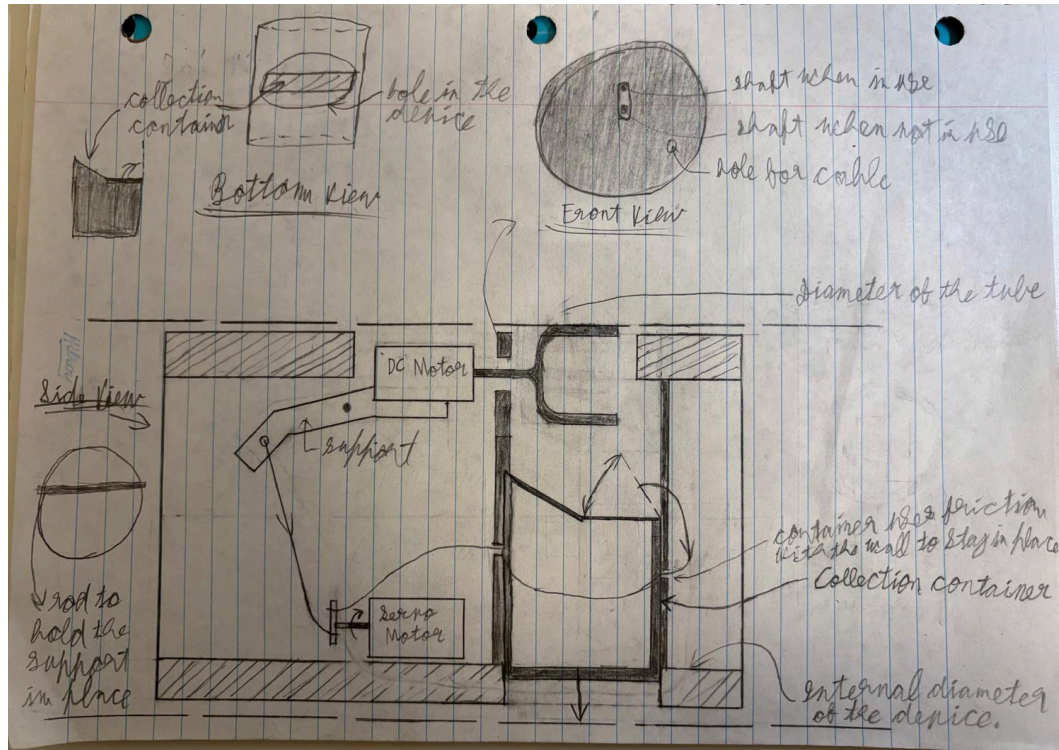 collection
container
hole in the
device
Bottom View
shaft when in use
shaft when not in use
hole for cable
Front View
Diameter of the tube
Side View
DC Motor
support
Servo
Motor
rod to
hold the
support
in place
container uses friction
with the wall to stay in place
Collection container
internal diameter
of the device.